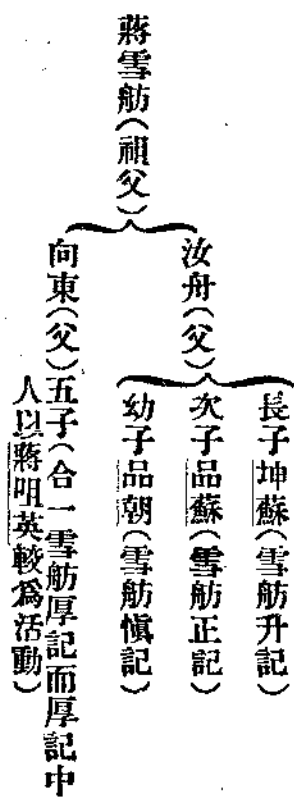 蔣雪舫(祖父)
汝舟(父)
長子坤蘇(雪舫升記)
次子品蘇(雪舫正記)
幼子品朝(雪舫愼記)
向東(父)五子(合一雪舫厚記而厚記中
人以蔣咀英較爲活動)